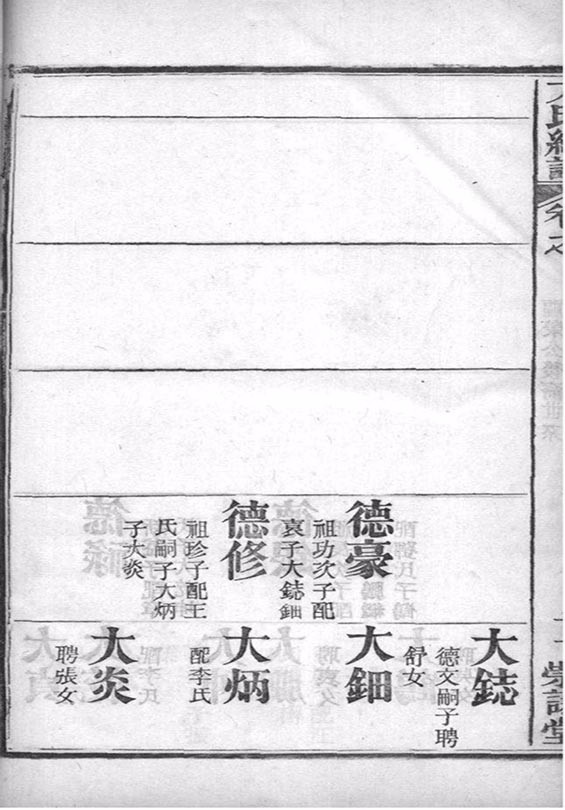 卷之
德豪
祖功次子配
袁子大鋕鈿
德修
祖珍子配王
氏嗣子大炳
子大炎
大鋕
德文嗣子聘
舒女
大鈿
大炳
配李氏
大炎
聘張女